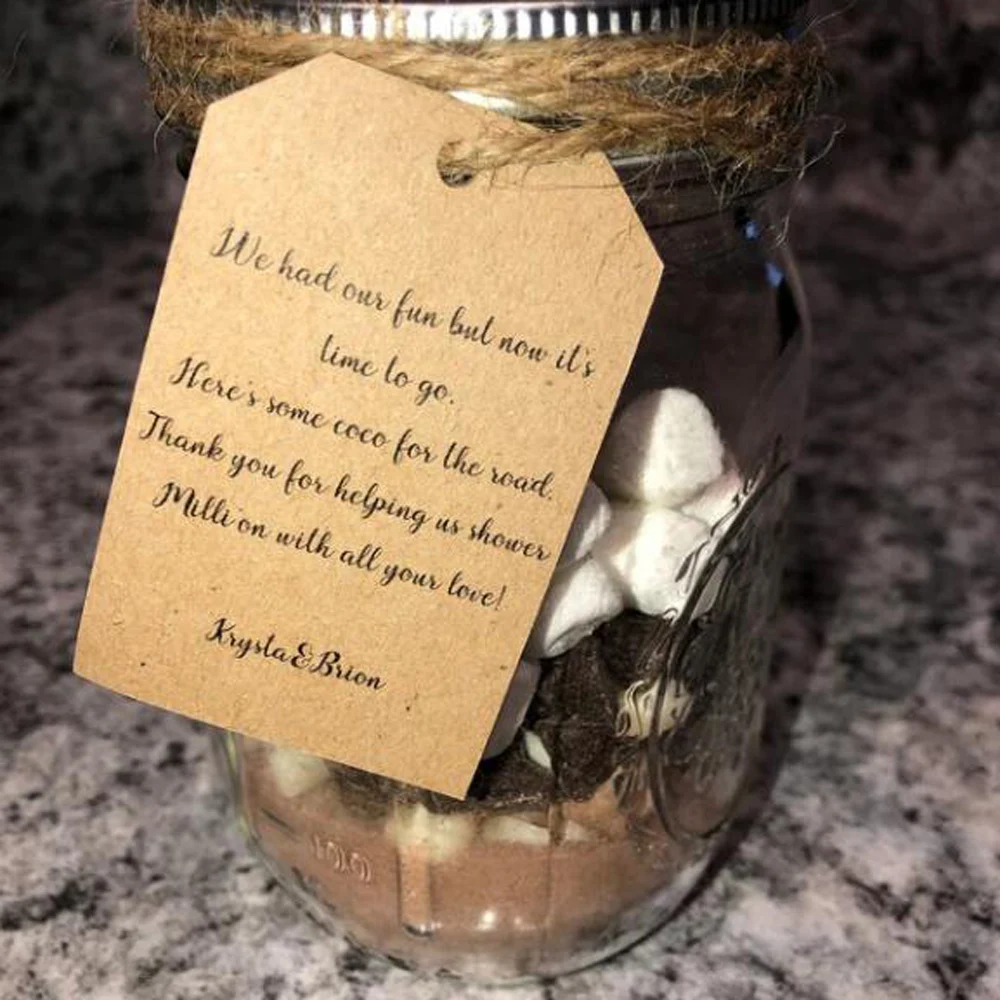 We had our fun but now it's
time to go.
Here's some coco for the road.
Thank you for helping us shower
Milli'on with all your love!
Krysta&Brion